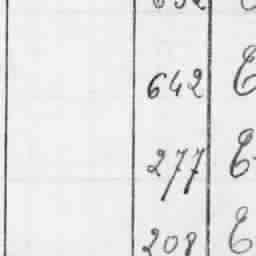 642 E
277 E
208 E